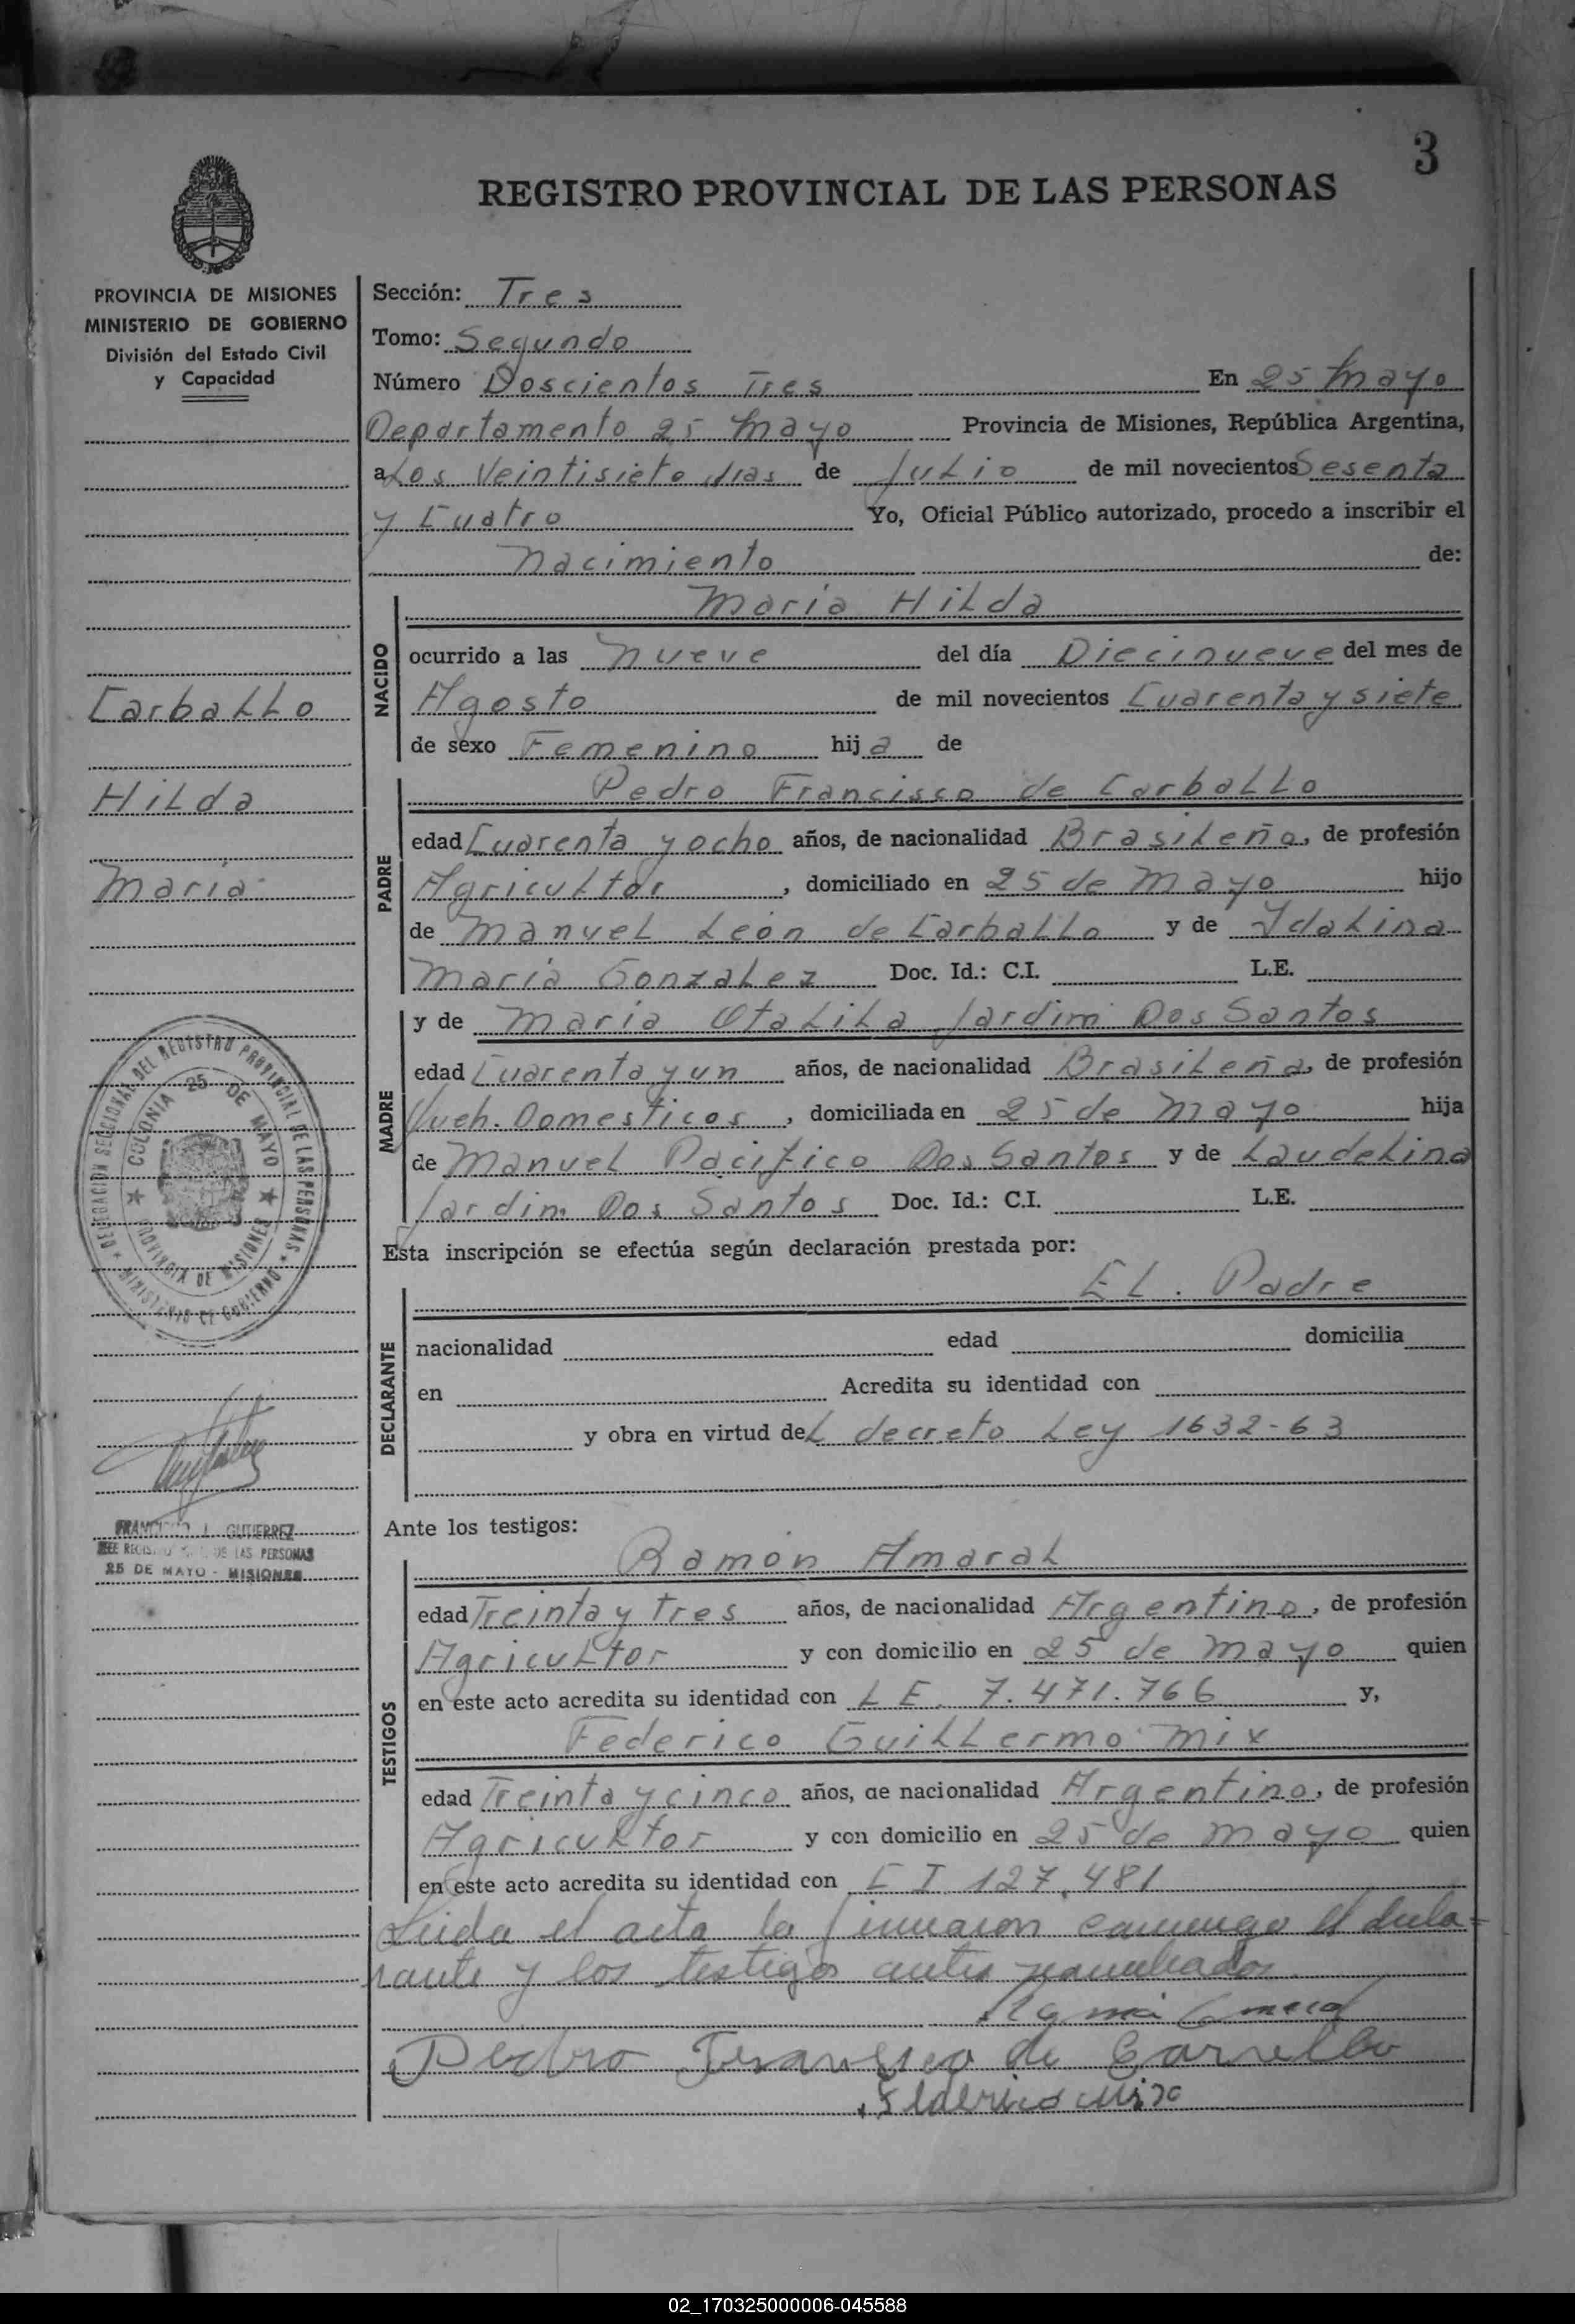 3
REGISTRO PROVINCIAL DE LAS PERSONAS
PROVINCIA DE MISIONES
MINISTERIO DE GOBIERNO
División del Estado Civil
y Capacidad
Carballo
Hilda
María
DELEGACIÓN SECCIONAL DEL REGISTRO PROVINCIAL DE LAS PERSONAS
MINISTERIO DE GOBIERNO
COLONIA 25 DE MAYO
PROVINCIA DE MISIONES
GUTIERREZ
DE LAS PERSONAS
25 DE MAYO - MISIONES
Sección: Tres
Tomo: Segundo
Número Doscientos Tres En 25 Mayo
Departamento 25 Mayo Provincia de Misiones, República Argentina,
a Los Veintisiete dias de Julio de mil novecientos Sesenta
y Cuatro Yo, Oficial Público autorizado, procedo a inscribir el
Nacimiento de:
NACIDO
María Hilda
ocurrido a las Nueve del día Diecinueve del mes de
Agosto de mil novecientos Cuarenta y siete
de sexo Femenino hija de
PADRE
Pedro Francisco de Carballo
edad Cuarenta y ocho años, de nacionalidad Brasileña, de profesión
Agricultor, domiciliado en 25 de Mayo hijo
de Manuel León de Carballo y de Idalina
María Gonzalez Doc. Id.: C.I. L.E.
MADRE
y de María Otalila Jardim Dos Santos
edad Cuarenta y un años, de nacionalidad Brasileña, de profesión
Queh. Domesticos, domiciliada en 25 de Mayo hija
de Manuel Pacifico Dos Santos y de Laudelina
Jardim Dos Santos Doc. Id.: C.I. L.E.
Esta inscripción se efectúa según declaración prestada por:
DECLARANTE
El. Padre
nacionalidad edad domicilia
en Acredita su identidad con
y obra en virtud del decreto Ley 1632-63
Ante los testigos:
TESTIGOS
Ramón Amaral
edad Treinta y tres años, de nacionalidad Argentino, de profesión
Agricultor y con domicilio en 25 de Mayo quien
en este acto acredita su identidad con L E. 7.471.766 y,
Federico Guillermo Mix
edad Treinta y cinco años, de nacionalidad Argentino, de profesión
Agricultor y con domicilio en 25 de Mayo quien
en este acto acredita su identidad con C I 127.481
Leida el acta la firmaron conmigo el decla-
rante y los testigos antes nombrados
Pedro Francisco de
Federico Mix
02_170325000006-045588